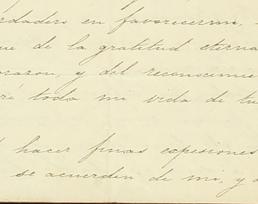 rdadero en favorecerme,
que de la gratitud eterna
orazon, y del reconocimie
ré toda mi vida de tu
hacer finas espresiones
se acuerden de mi, y a